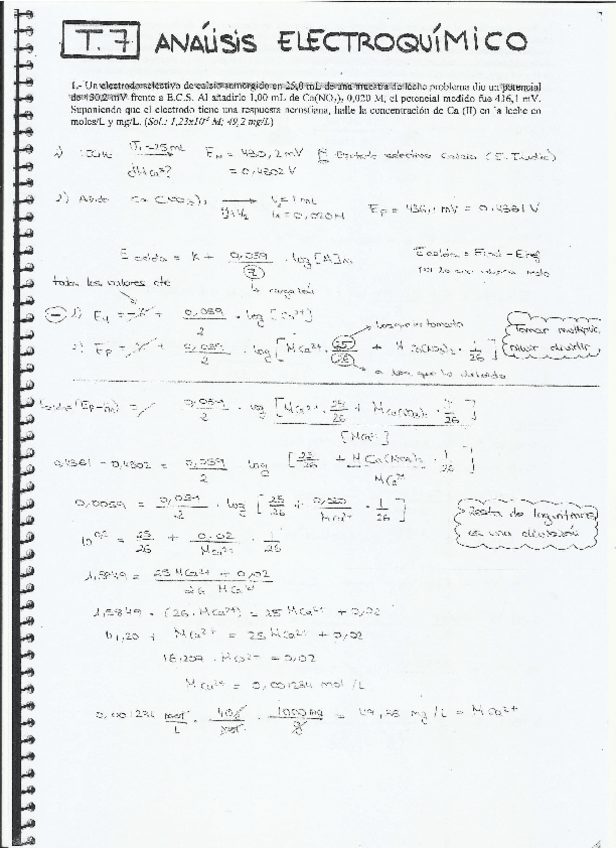 T.7 ANÁLISIS ELECTROQUÍMICO
1.- Un electrodo selectivo de calcio sumergido en 25,0 mL de una muestra de leche problema dio un potencial
de 430,2 mV frente a B.C.S. Al añadirle 1,00 mL de Ca(NO₃)₂ 0,020 M, el potencial medido fue 436,1 mV.
Suponiendo que el electrodo tiene una respuesta nernstiana, halle la concentración de Ca (II) en la leche en
moles/L y mg/L. (Sol.: 1,23x10⁻³ M; 49,2 mg/L)
= 25 mL E = 430,2 mV Electrodo selectivo Calcio
= 0,4302 V
2) V = 1 mL
= 0,020M Ep = 436,1 mV = 0,4361 V
E celda = K + 0,059/2 · log [M]
carga ion
todos los valores cte
1) = K + 0,059/2 · log [Ca²⁺]
2) Ep = K + 0,059/2 · log [M Ca²⁺ · 25/26 + M Ca(NO₃)₂ · 1/26]
Tomar multiplic.
diluir dividir
0,059/2 · log [M Ca²⁺ · 25/26 + M Ca(NO₃)₂ · 1/26] / [M Ca²⁺]
0,4361 - 0,4302 = 0,059/2 log [25/26 + M Ca(NO₃)₂ / M Ca²⁺ · 1/26]
0,0059 = 0,059/2 · log [25/26 + 0,020/M Ca²⁺ · 1/26]
Resta de logaritmos
es una división
10^0,2 = 25/26 + 0,02/M Ca²⁺ · 1/26
1,5849 = 25 M Ca²⁺ + 0,02 / 26 M Ca²⁺
1,5849 · (26 · M Ca²⁺) = 25 M Ca²⁺ + 0,02
M Ca²⁺ = 25 M Ca²⁺ + 0,02
16,207 · M Ca²⁺ = 0,02
M Ca²⁺ = 0,001234 mol/L
0,001234 mol/L · 40g/mol · 1000 mg/g = mg/L = M Ca²⁺